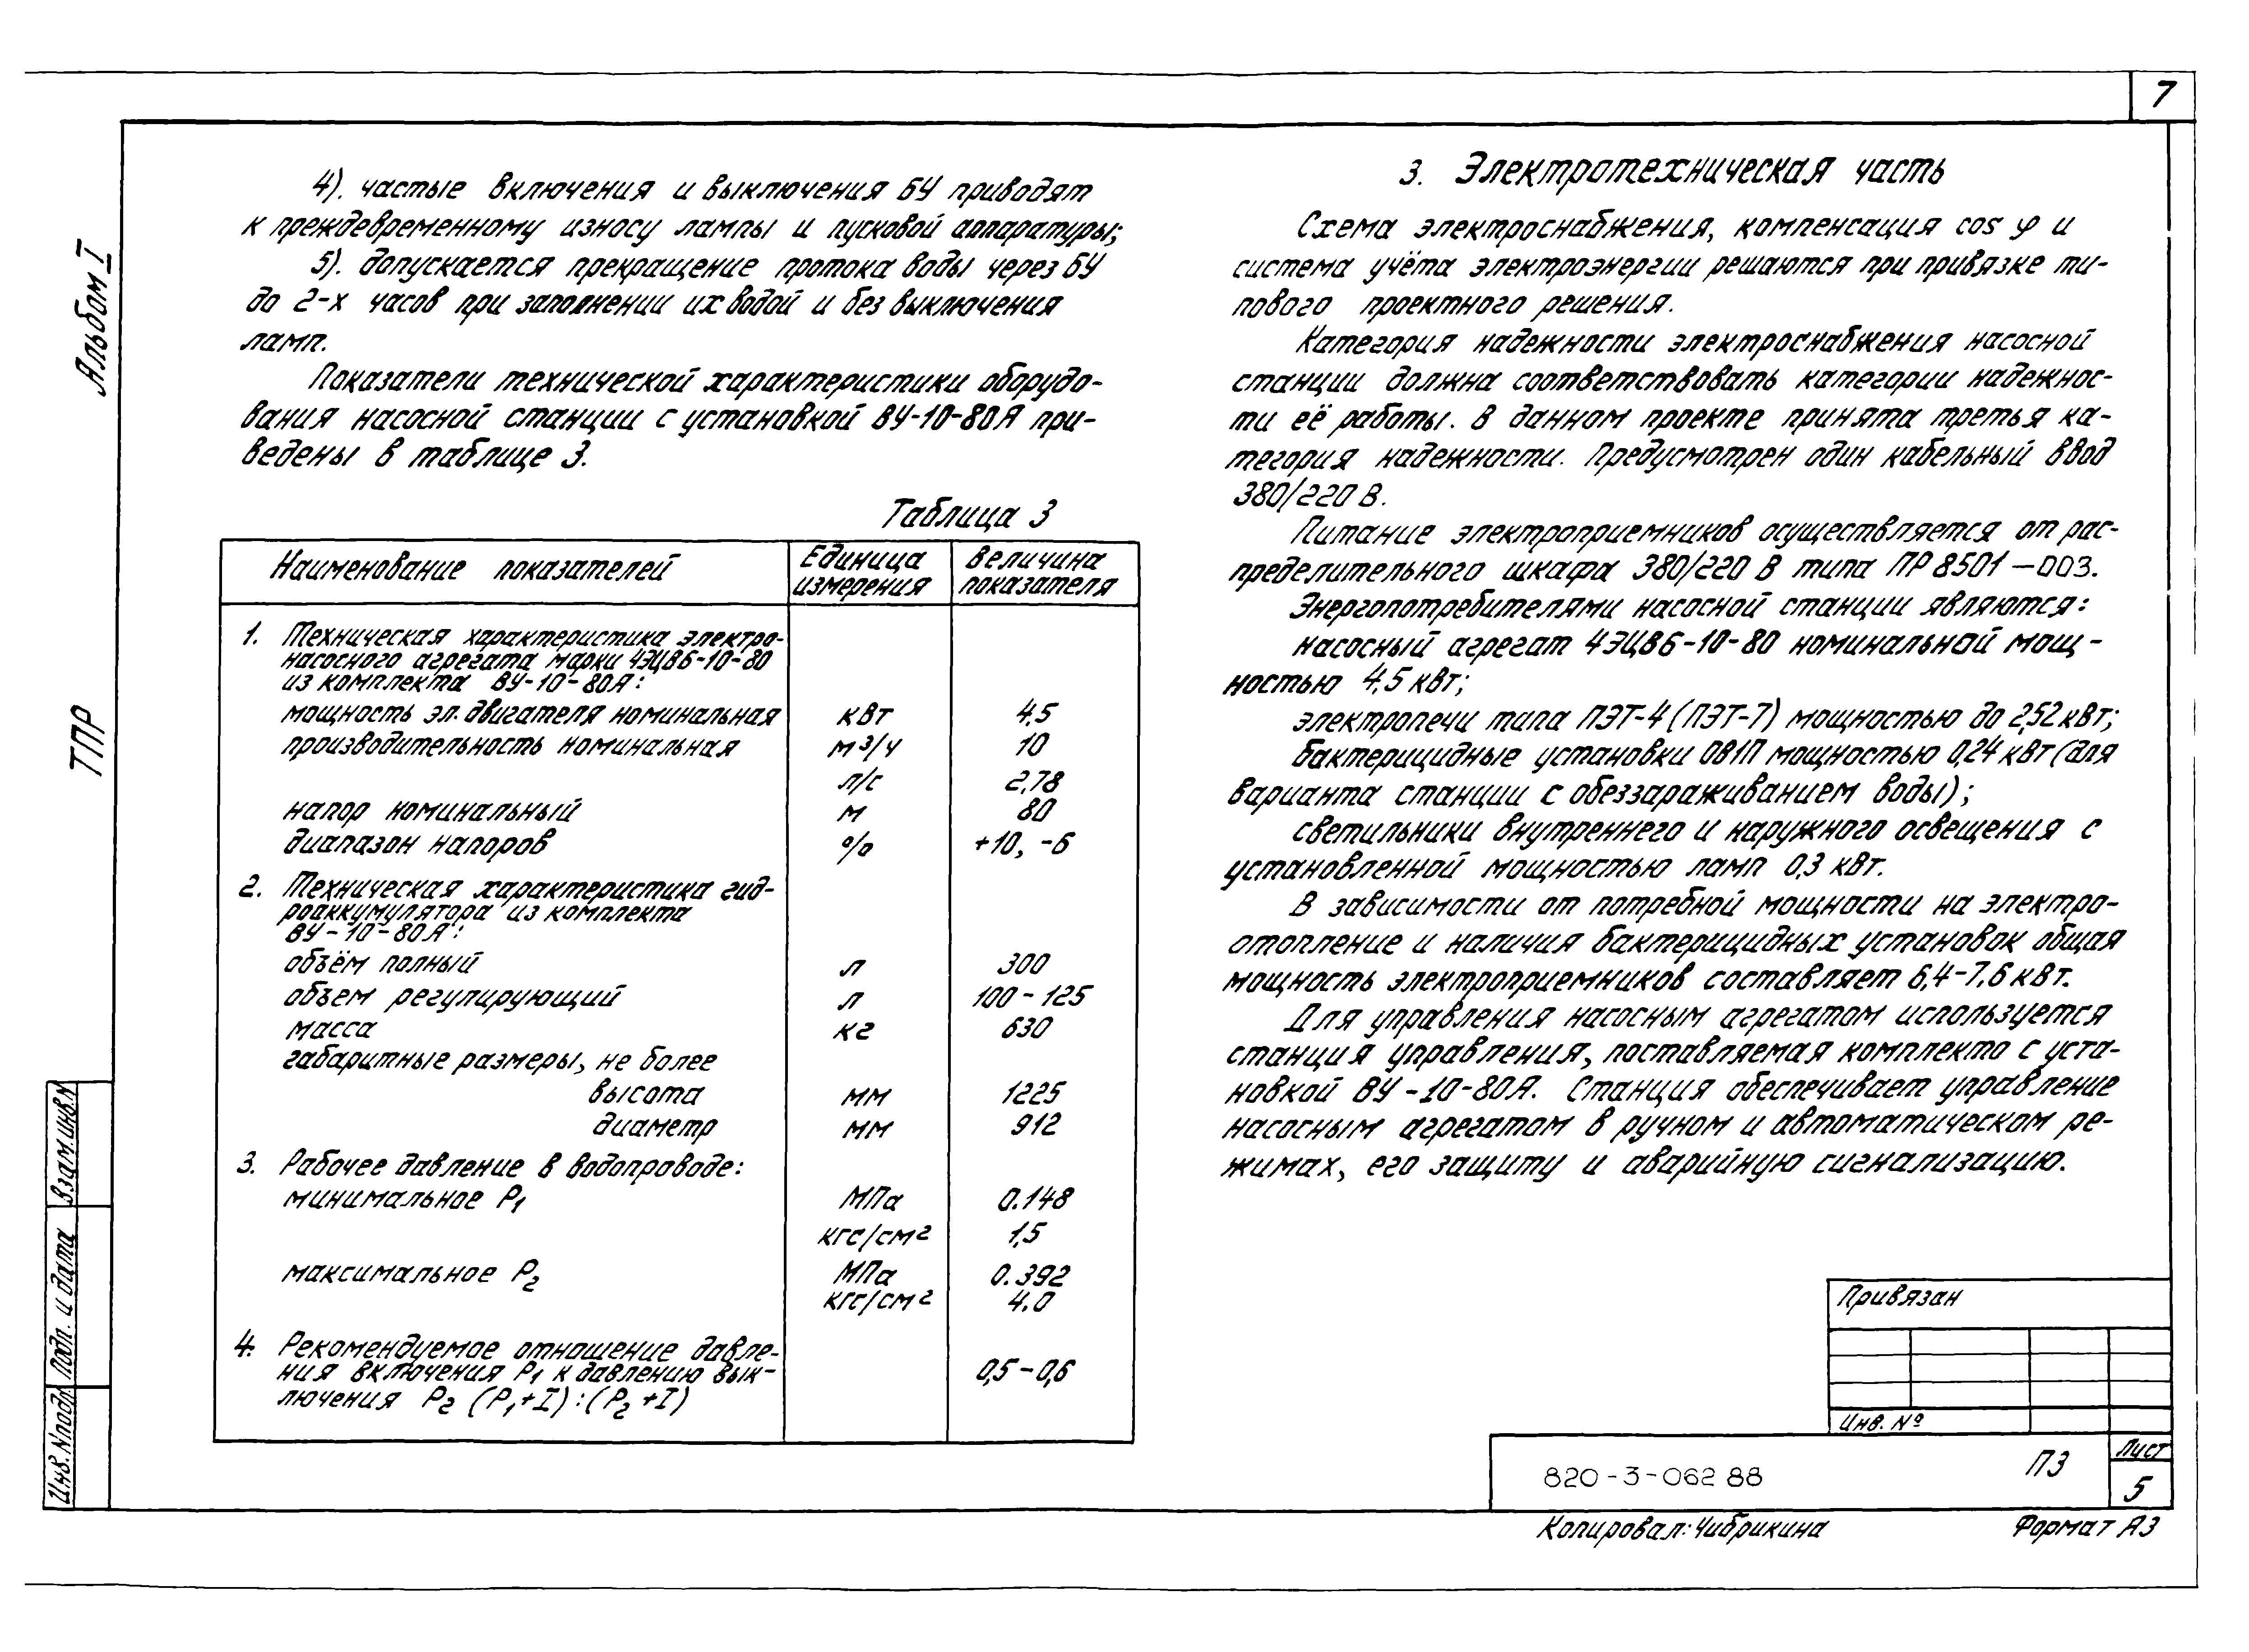 7
Альбом I
ТПР
4). частые включения и выключения БУ приводят
к преждевременному износу лампы и пусковой аппаратуры;
5). допускается прекращение протока воды через БУ
до 2-х часов при заполнении их водой и без выключения
ламп.
Показатели технической характеристики оборудо-
вания насосной станции с установкой ВУ-10-80А при-
ведены в таблице 3.
Таблица 3
Наименование показателей
Единица измерения
Величина показателя
1. Техническая характеристика электро-
насосного агрегата марки 4ЭЦВ6-10-80
из комплекта ВУ-10-80А:
мощность эл. двигателя номинальная кВт 4,5
производительность номинальная м3/ч 10
л/с 2,78
напор номинальный м 80
диапазон напоров % +10, -6
2. Техническая характеристика гид-
роаккумулятора из комплекта
ВУ-10-80А:
объём полный л 300
объем регулирующий л 100-125
масса кг 630
габаритные размеры, не более
высота мм 1225
диаметр мм 912
3. Рабочее давление в водопроводе:
минимальное P1 МПа 0.148
кгс/см2 1,5
максимальное P2 МПа 0.392
кгс/см2 4.0
4. Рекомендуемое отношение давле-
ния включения P1 к давлению вык-
лючения P2 (P1+I):(P2+I) 0,5-0,6
3. Электротехническая часть
Схема электроснабжения, компенсация cos φ и
система учёта электроэнергии решаются при привязке ти-
пового проектного решения.
Категория надежности электроснабжения насосной
станции должна соответствовать категории надежнос-
ти её работы. В данном проекте принята третья ка-
тегория надежности. Предусмотрен один кабельный ввод
380/220 В.
Питание электроприемников осуществляется от рас-
пределительного шкафа 380/220 В типа ПР 8501-003.
Энергопотребителями насосной станции являются:
насосный агрегат 4ЭЦВ6-10-80 номинальной мощ-
ностью 4,5 кВт;
электропечи типа ПЭТ-4 (ПЭТ-7) мощностью до 2,52 кВт;
бактерицидные установки ОВ1П мощностью 0,24 кВт (для
варианта станции с обеззараживанием воды);
светильники внутреннего и наружного освещения с
установленной мощностью ламп 0,3 кВт.
В зависимости от потребной мощности на электро-
отопление и наличия бактерицидных установок общая
мощность электроприемников составляет 6,4-7,6 кВт.
Для управления насосным агрегатом используется
станция управления, поставляемая комплекто с уста-
новкой ВУ-10-80А. Станция обеспечивает управление
насосным агрегатом в ручном и автоматическом ре-
жимах, его защиту и аварийную сигнализацию.
Взам. инв. N
Подп. и дата
Инв. N подл.
Привязан
Инв. №
820-3-062 88
ПЗ
Лист
5
Копировал: Чибрикина
Формат А3